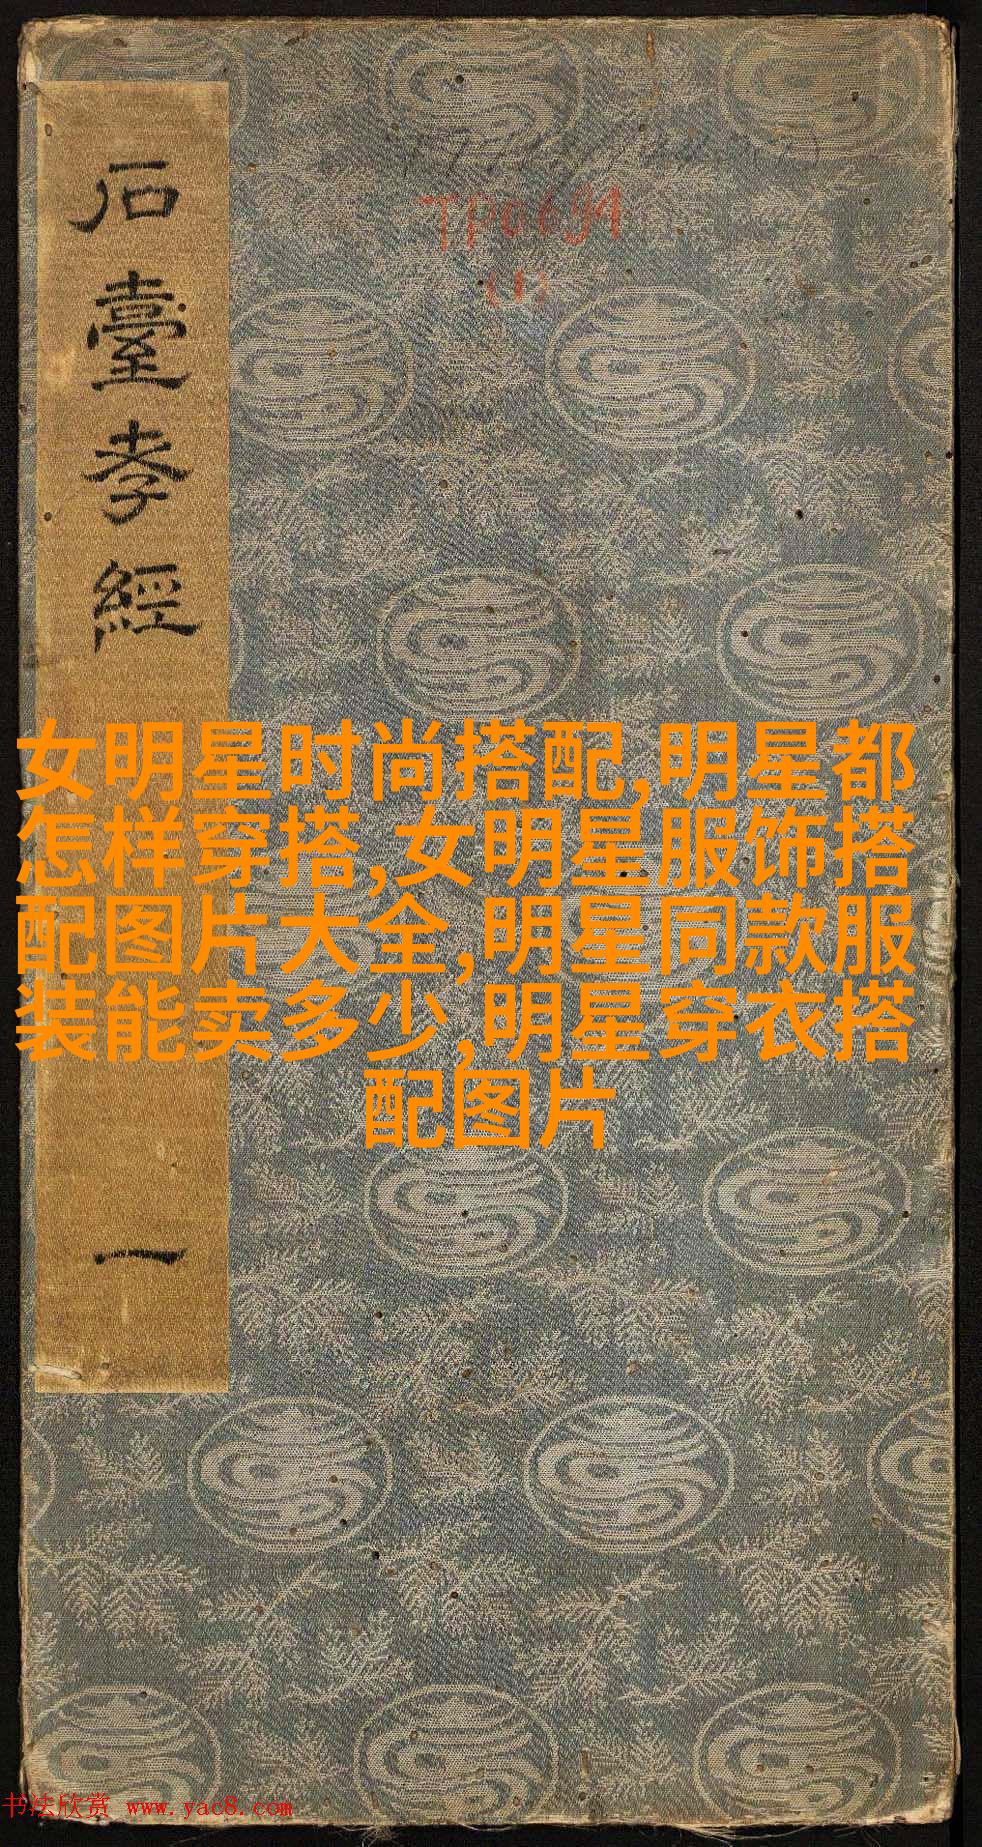 石臺孝經
一
TP0691
(1)
女明星时尚搭配,明星都
怎样穿搭,女明星服饰搭
配图片大全,明星同款服
装能卖多少,明星穿衣搭
配图片
书法欣赏 www.yac8.com